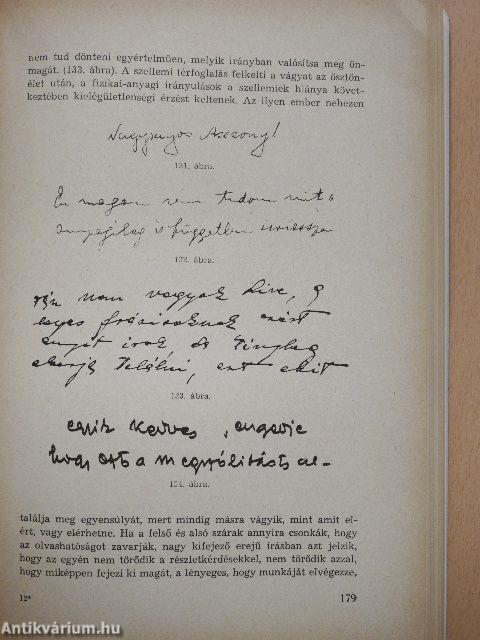 nem tud dönteni egyértelműen, melyik irányban valósítsa meg ön-
magát. (133. ábra). A szellemi térfoglalás felkelti a vágyat az ösztön-
élet után, a fizikai-anyagi irányulások a szellemiek hiánya követ-
keztében kielégületlenségi érzést keltenek. Az ilyen ember nehezen
Nagyságos Asszony!
131. ábra.
Én magam nem tudom mit
is független
132. ábra.
nem vagyok híve,
egyes frázisoknak ezért
ennyit írok, de tényleg
találni, ezt
133. ábra.
egyik kedves, engedje
hogy ezt a megszólítást al-
134. ábra.
találja meg egyensúlyát, mert mindig másra vágyik, mint amit el-
ért, vagy elérhetne. Ha a felső és alsó szárak annyira csonkák, hogy
az olvashatóságot zavarják, nagy kifejező erejű írásban azt jelzik,
hogy az egyén nem törődik a részletkérdésekkel, nem törődik azzal,
hogy miképpen fejezi ki magát, a lényeges, hogy munkáját elvégezze,
12*
179
Antikvárium.hu